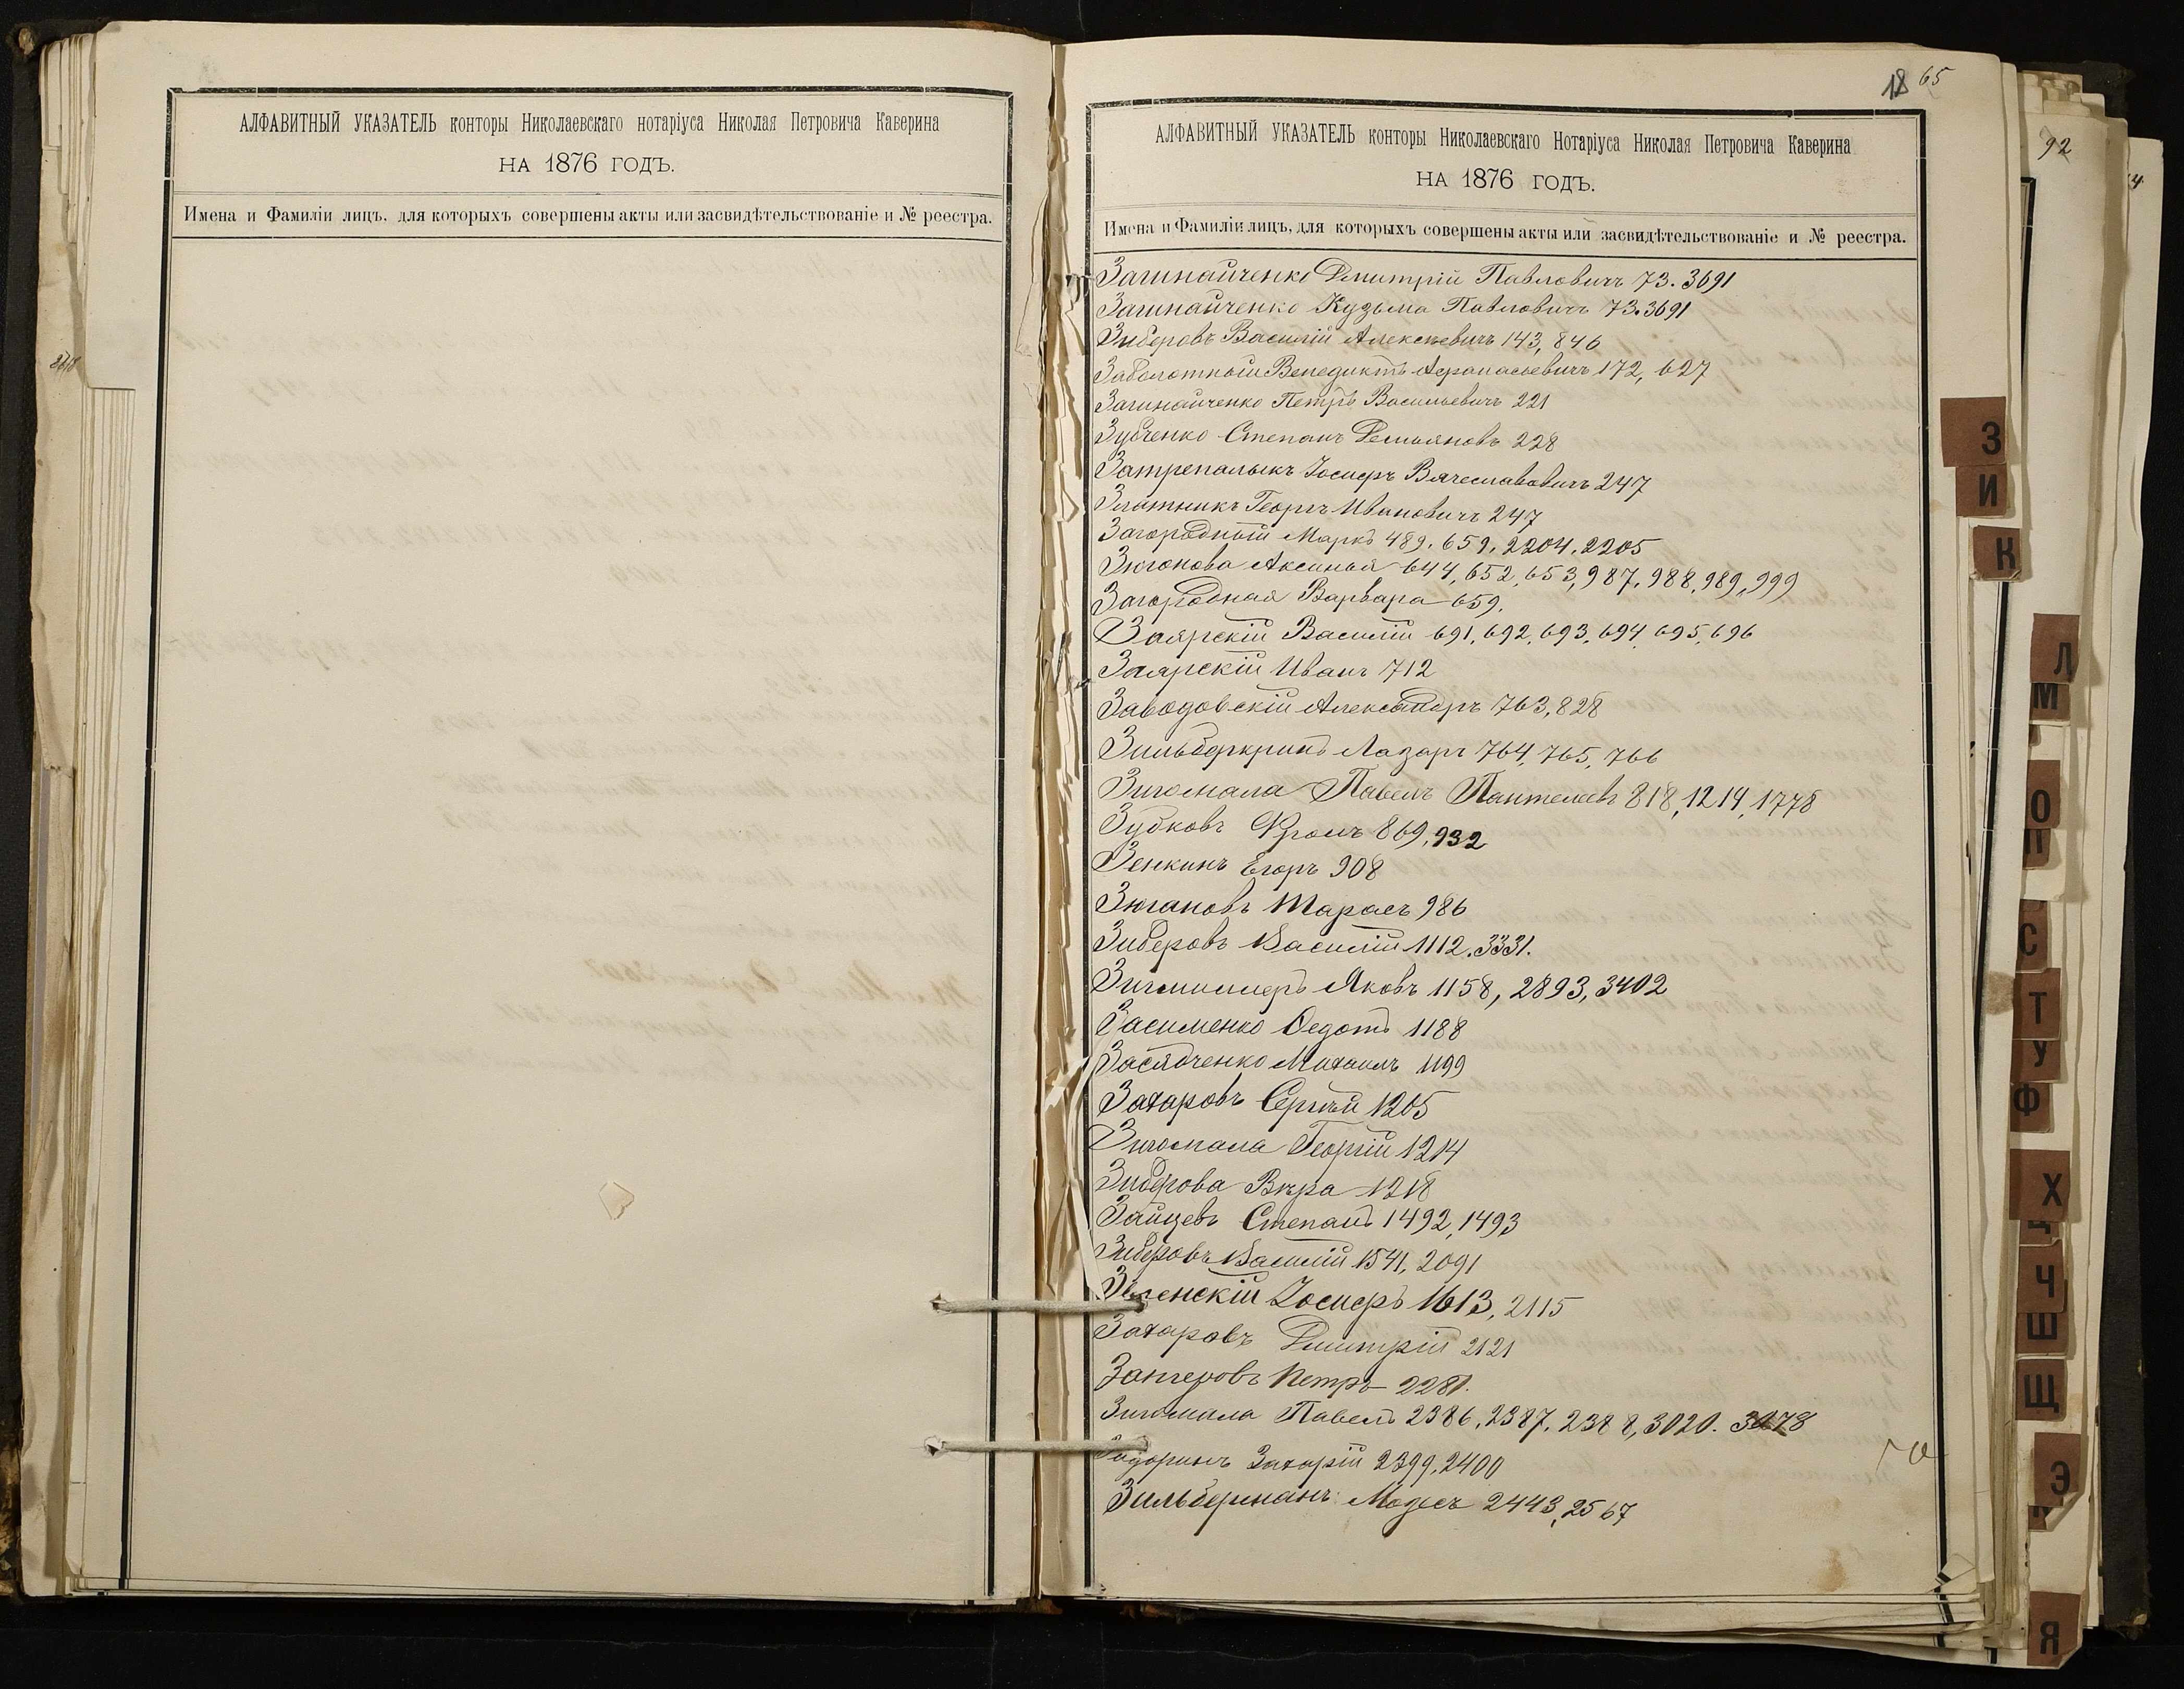 АЛФАВИТНЫЙ УКАЗАТЕЛЬ конторы Николаевскаго нотаріуса Николая Петровича Каверина
НА 1876 ГОДЪ.
Имена и Фамиліи лицъ, для которыхъ совершены акты или засвидѣтельствованіе и № реестра.
18 65
АЛФАВИТНЫЙ УКАЗАТЕЛЬ конторы Николаевскаго Нотаріуса Николая Петровича Каверина
НА 1876 ГОДЪ.
Имена и Фамиліи лицъ, для которыхъ совершены акты или засвидѣтельствованіе и № реестра.
Загинайченко Дмитрій Павловичъ 73. 3691
Загинайченко Кузьма Павловичъ 73. 3691
Зиберовъ Василій Алексѣевичъ 143, 846
Заболотный Венедиктъ Афанасьевичъ 172, 627
Загинайченко Петръ Васильевичъ 221
Зубченко Степанъ Демьяновъ 228
Затрепалыкъ Іосифъ Вячеславовичъ 247
Златникъ Георгъ Ивановичъ 247
Загородный Маркъ 489. 659. 2204. 2205
Зюганова Аксинья 644, 652, 653, 987. 988. 989, 999
Загородная Варвара 659.
Заярскій Василій 691, 692, 693, 694, 695, 696
Заярскій Иванъ 712
Заводовскій Александръ 763, 828
Лазарь 764, 765, 766
Зигомала Павелъ Пантелеевъ 818, 1214, 1778
Зубковъ 869, 932
Зенкинъ Егоръ 908
Зюгановъ Тарасъ 986
Зиберовъ Василій 1112. 3331.
Яковъ 1158, 2893, 3402
Засименко Ѳедотъ 1188
Засядченко Михаилъ 1199
Захаровъ Сергѣй 1205
Зигомала Георгій 1214
Зиберова Вѣра 1218
Зайцевъ Степанъ 1492, 1493
Зиберовъ Василій 1541, 2091
Іосифъ 1613, 2115
Захаровъ Дмитрій 2121
Петръ 2281.
Зигомала Павелъ 2386, 2387, 2388, 3020. 3478
Захарій 2399, 2400
Зильберманъ Мозесъ 2443, 2567
92
З
И
К
Л
М
О
П
С
Т
У
Ф
Х
Ц
Ч
Ш
Щ
Э
Я